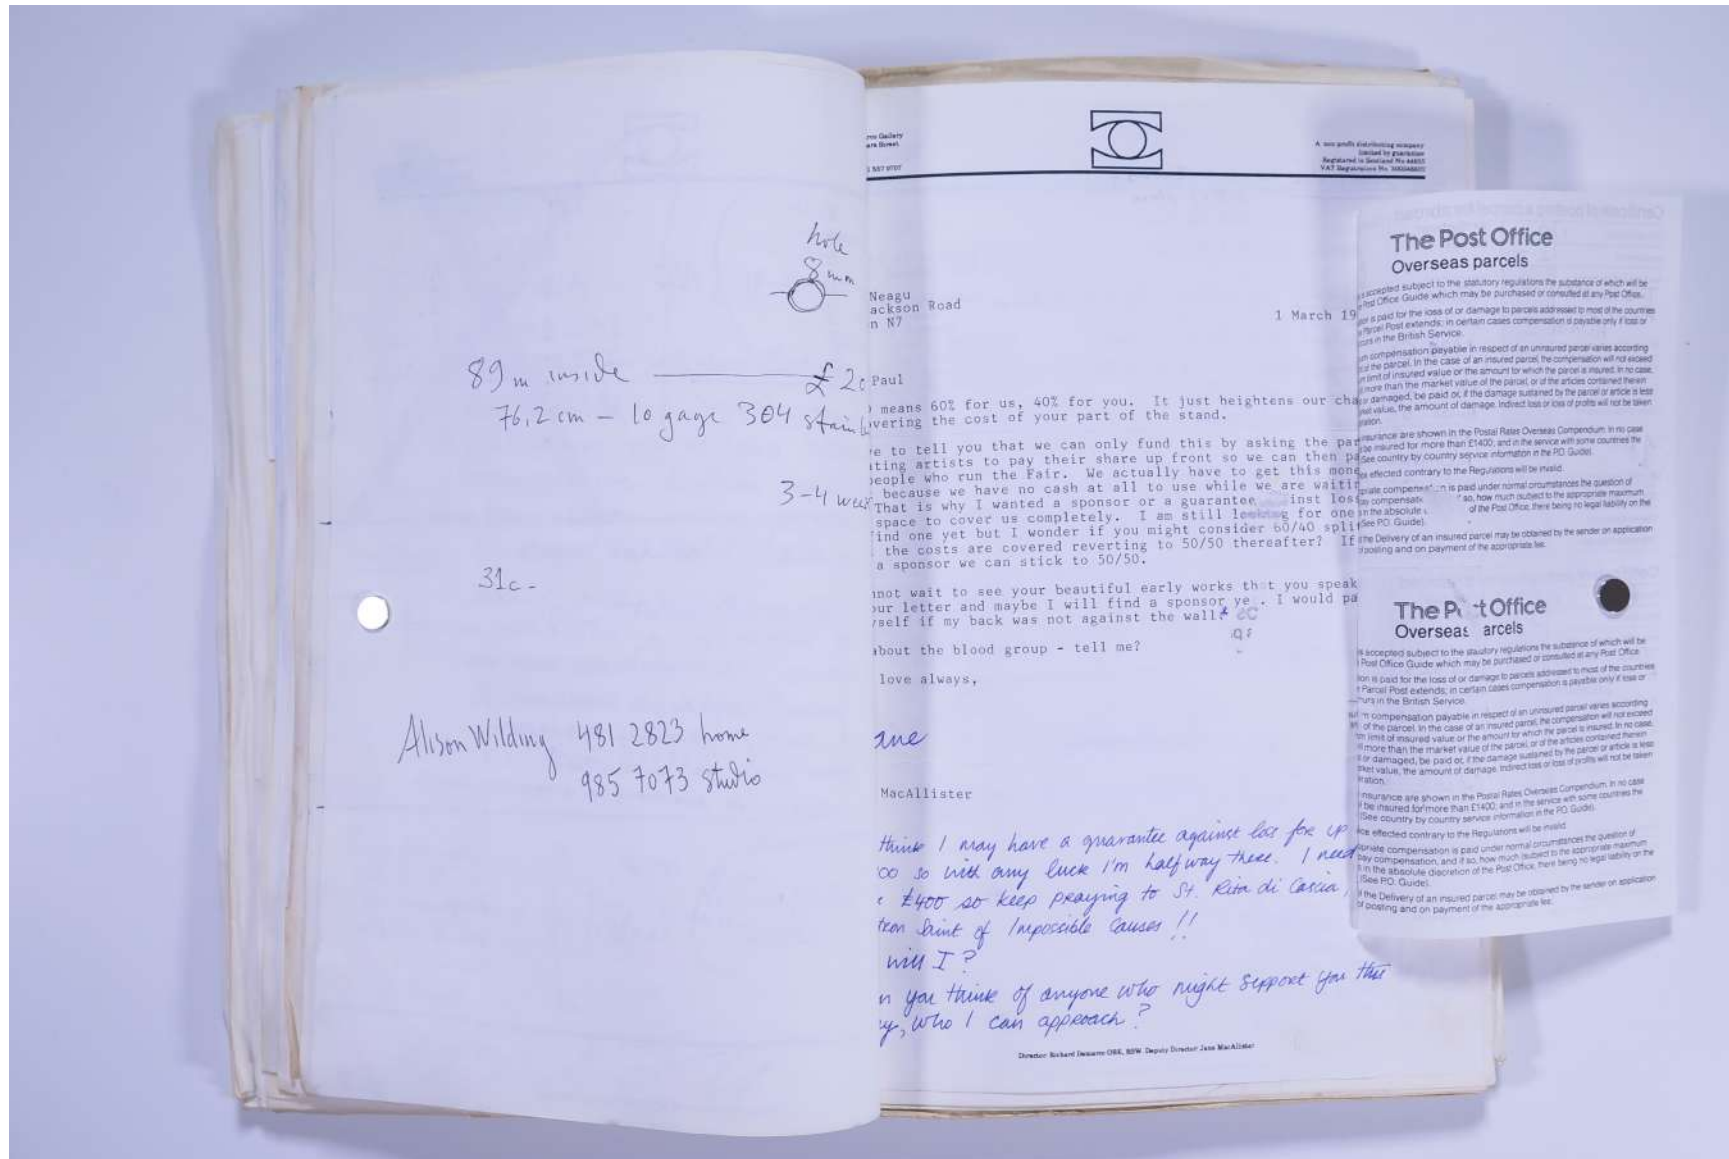 hole
8 mm
89 m inside — £ 20
76,2 cm — 10 gage 304 stainl
3-4 wee
31c -
Alison Wilding 481 2823 home
985 7073 studio
Gallery
Street
557 0707
A non profit distributing company
limited by guarantee
Registered in Scotland No
VAT Registration No
Neagu
ackson Road
n N7
1 March 19
Paul
means 60% for us, 40% for you. It just heightens our cha
vering the cost of your part of the stand.
e to tell you that we can only fund this by asking the par
ting artists to pay their share up front so we can then pa
eople who run the Fair. We actually have to get this mone
because we have no cash at all to use while we are waitin
That is why I wanted a sponsor or a guarantee inst loss
space to cover us completely. I am still looking for one
ind one yet but I wonder if you might consider 60/40 split
the costs are covered reverting to 50/50 thereafter? If
a sponsor we can stick to 50/50.
not wait to see your beautiful early works th t you speak
ur letter and maybe I will find a sponsor ye . I would pa
self if my back was not against the wall.
about the blood group - tell me?
love always,
ane
MacAllister
think I may have a guarantee against loss for up
00 so with any luck I'm halfway there. I need
£400 so keep praying to St. Rita di Cascia,
tron Saint of Impossible Causes!!
will I?
n you think of anyone who might support you this
y, who I can approach?
Director: Richard Demarco OBE, RSW. Deputy Director: Jane MacAllister
The Post Office
Overseas parcels
accepted subject to the statutory regulations the substance of which will be
Post Office Guide which may be purchased or consulted at any Post Office.
is paid for the loss of or damage to parcels addressed to most of the countries
Parcel Post extends; in certain cases compensation is payable only if loss or
urs in the British Service.
compensation payable in respect of an uninsured parcel varies according
of the parcel. In the case of an insured parcel, the compensation will not exceed
limit of insured value or the amount for which the parcel is insured. In no case,
more than the market value of the parcel, or of the articles contained therein
or damaged, be paid or, if the damage sustained by the parcel or article is less
value, the amount of damage. Indirect loss or loss of profits will not be taken
ration.
nsurance are shown in the Postal Rates Overseas Compendium. In no case
be insured for more than £1400; and in the service with some countries the
See country by country service information in the P.O. Guide).
effected contrary to the Regulations will be invalid.
priate compensat n is paid under normal circumstances the question of
ay compensatio so, how much (subject to the appropriate maximum
in the absolute of the Post Office, there being no legal liability on the
See P.O. Guide).
the Delivery of an insured parcel may be obtained by the sender on application
of posting and on payment of the appropriate fee.
The P st Office
Overseas arcels
is accepted subject to the statutory regulations the substance of which will be
Post Office Guide which may be purchased or consulted at any Post Office.
ion is paid for the loss of or damage to parcels addressed to most of the countries
Parcel Post extends; in certain cases compensation is payable only if loss or
urs in the British Service.
m compensation payable in respect of an uninsured parcel varies according
of the parcel. In the case of an insured parcel, the compensation will not exceed
limit of insured value or the amount for which the parcel is insured. In no case,
more than the market value of the parcel, or of the articles contained therein
or damaged, be paid or, if the damage sustained by the parcel or article is less
ket value, the amount of damage. Indirect loss or loss of profits will not be taken
ration.
nsurance are shown in the Postal Rates Overseas Compendium. In no case
be insured for more than £1400; and in the service with some countries the
(See country by country service information in the P.O. Guide).
ce effected contrary to the Regulations will be invalid.
opriate compensation is paid under normal circumstances the question of
pay compensation, and if so, how much (subject to the appropriate maximum
in the absolute discretion of the Post Office, there being no legal liability on the
(See P.O. Guide).
f the Delivery of an insured parcel may be obtained by the sender on application
of posting and on payment of the appropriate fee.